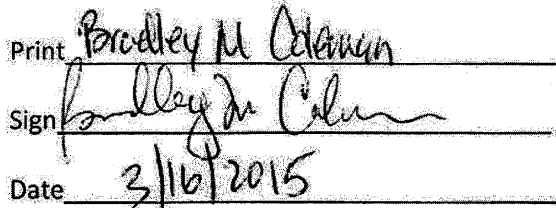 Print Bradley M Coleman
Sign Bradley M Colman
Date 3/16/2015